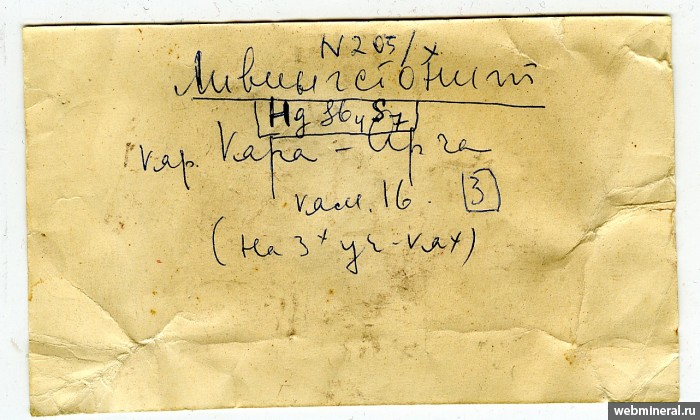 N 205/x
Ливингстонит
Hg Sb4 S7
кар. Кара-Арча
кам. 16. 3
(на 3х уч-ках)
webmineral.ru